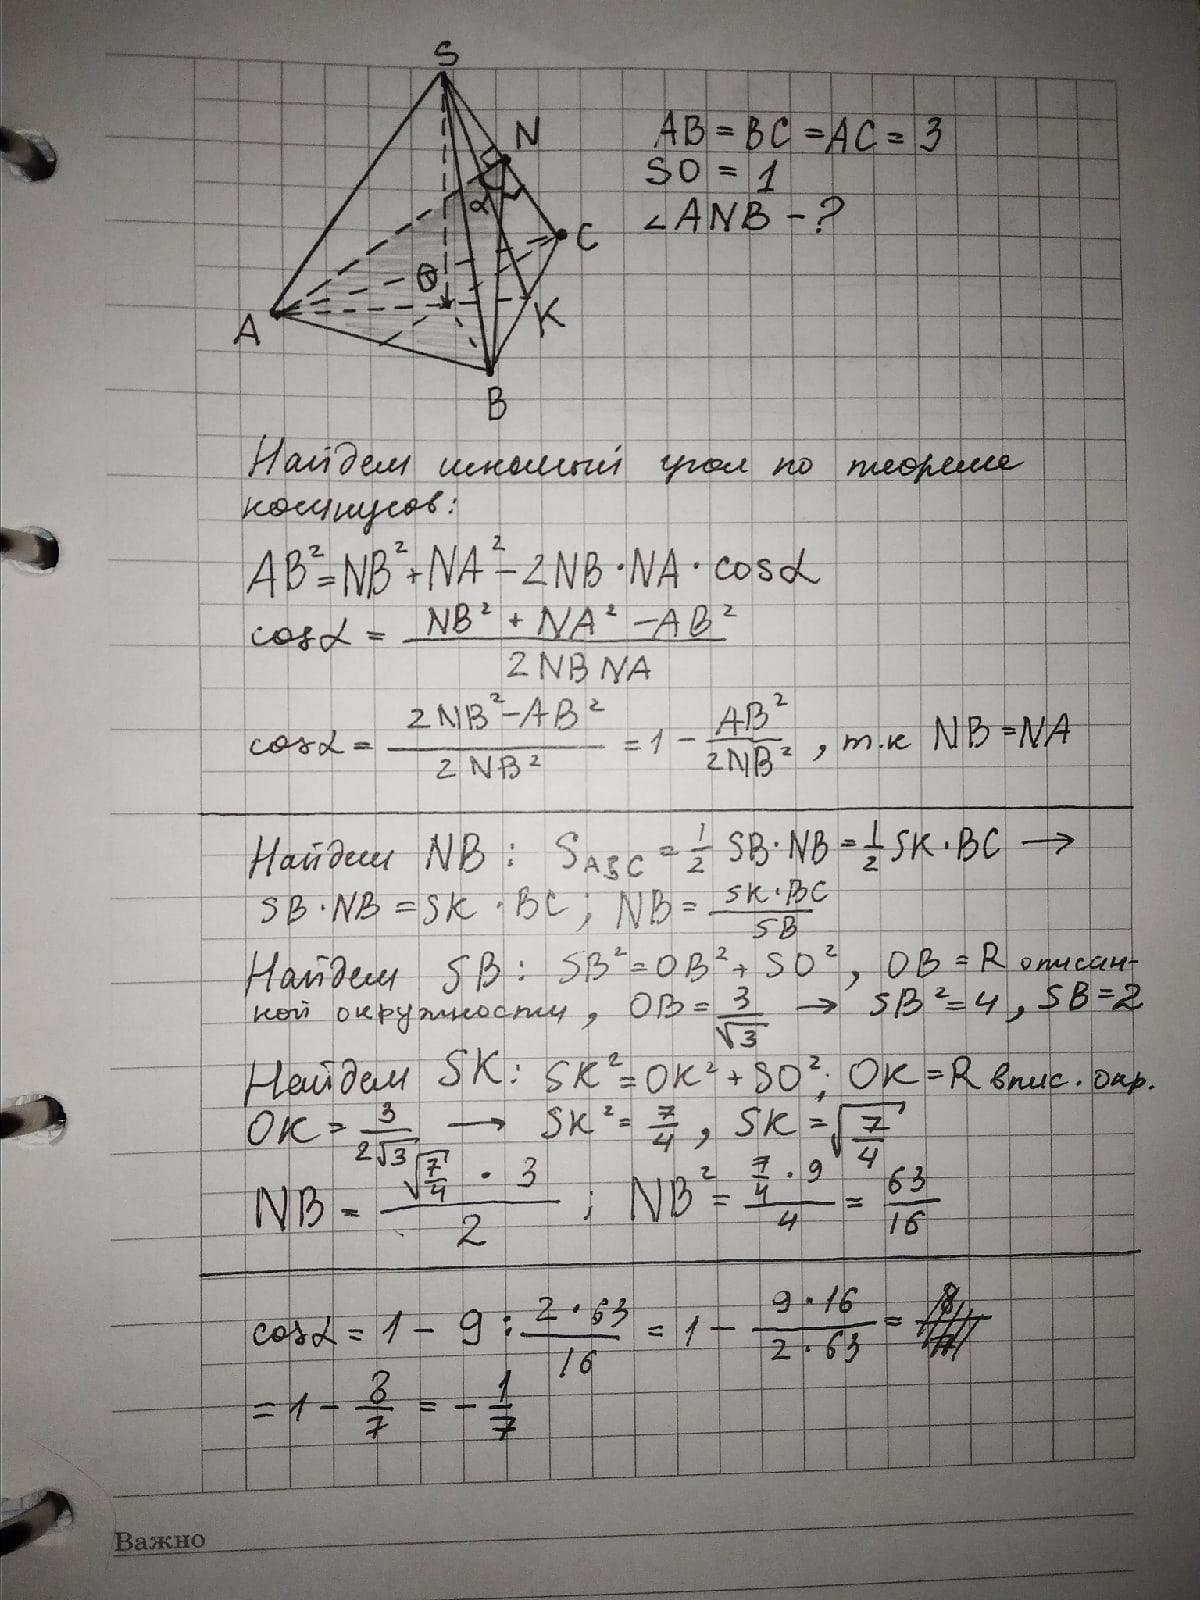 S
N
C
O
K
A
B
α
AB = BC = AC = 3
SO = 1
∠ANB - ?
Найдем искомый угол по теореме
косинусов:
AB² = NB² + NA² - 2NB · NA · cosα
cosα = (NB² + NA² - AB²) / (2NB NA)
cosα = (2NB² - AB²) / (2NB²) = 1 - AB² / (2NB²), т.к NB = NA
Найдем NB: S_ABC = 1/2 SB · NB = 1/2 SK · BC →
SB · NB = SK · BC; NB = (SK · BC) / SB
Найдем SB: SB² = OB² + SO², OB = R описан-
ной окружности, OB = 3/√3 → SB² = 4, SB = 2
Найдем SK: SK² = OK² + SO²; OK = R впис. окр.
OK = 3/(2√3) → SK² = 7/4, SK = √(7/4)
NB = (√(7/4) · 3) / 2; NB² = (7/4 · 9) / 4 = 63/16
cosα = 1 - 9 : (2 · 63)/16 = 1 - (9 · 16)/(2 · 63) =
= 1 - 8/7 = - 1/7
Важно